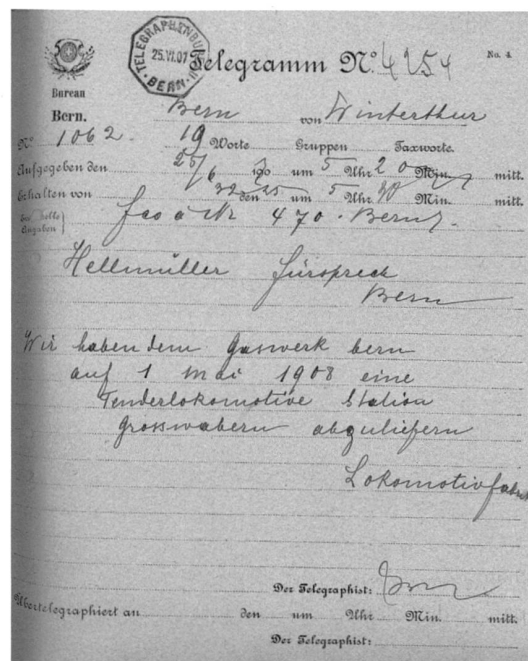 TELEGRAPHENBUREAU
25.VI.07
BERN
Telegramm No. 4254
No. 4
Bureau
Bern.
Bern von Winterthur
No. 1062. 19 Worte Gruppen Taxworte.
Aufgegeben den 25/6 190 um 5 Uhr 20 Min. mitt.
Erhalten von den 25 um 5 Uhr Min. mitt.
Angaben
470. Bern
Hellmüller Fürsprech
Bern
Wir haben dem gaswerk bern
auf 1 Mai 1908 eine
Tenderlokomotive Station
Grosswabern abzuliefern
Lokomotivfabrik
Der Telegraphist:
Übertelegraphiert an den um Uhr Min. mitt.
Der Telegraphist: